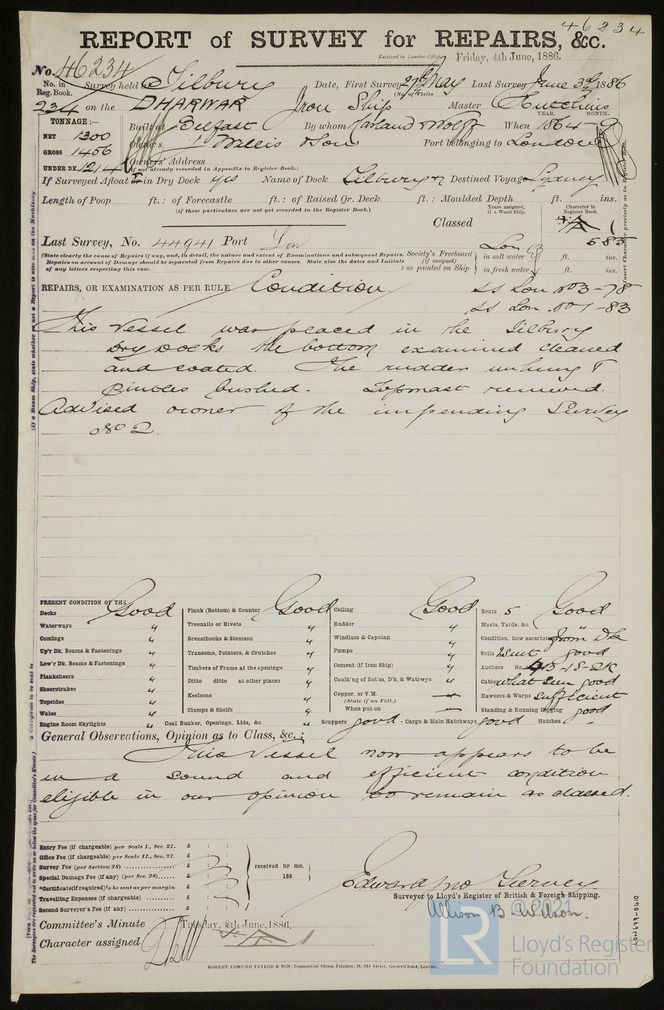 46234
REPORT of SURVEY for REPAIRS, &c.
Received in London Office Friday, 4th June, 1886.
No. 46234
No. in Reg. Book. Survey held at Tilbury Date, First Survey 27th May Last Survey June 3rd 1886
234 on the DHARWAR Iron Ship Master Hutchins
TONNAGE:— Built at Belfast By whom Harland & Wolff When 1864 9
YEAR. MONTH.
NET 1300
GROSS 1456 Owners J Willis & Son Port belonging to London
UNDER DK. 1214 Owners' Address
(If not already recorded in Appendix to Register Book.)
If Surveyed Afloat or in Dry Dock yes Name of Dock Tilbury Destined Voyage Sydney
Length of Poop ft.: of Forecastle ft.: of Raised Qr. Deck ft.: Moulded Depth ft. ins.
(if these particulars are not yet recorded in the Register Book.)
Classed
Years assigned, if a Wood Ship.
Character in Register Book.
Last Survey, No. 44941 Port Lon
(State clearly the cause of Repairs if any, and, in detail, the nature and extent of Examinations and subsequent Repairs. Repairs on account of Damage should be separated from Repairs due to other causes. State also the dates and initials of any letters respecting this case.
Society's Freeboard (if assigned) as painted on Ship in salt water ft. ins.
in fresh water ft. ins.
REPAIRS, OR EXAMINATION AS PER RULE Condition SS Lon No 3-78
SS Lon No 1-83
This Vessel was placed in the Tilbury
Dry Docks the bottom examined cleaned
and coated. The rudder unhung &
pintles bushed. Topmast renewed.
Advised owner of the impending Survey
No 2.
PRESENT CONDITION OF THE
Decks Good Plank (Bottom) & Counter Good Ceiling Good Boats 5 Good
Waterways " Treenails or Rivets " Rudder " Masts, Yards, &c. "
Comings " Breasthooks & Stemson " Windlass & Capstan " Condition, how ascertained from Dk
Up'r Dk. Beams & Fastenings " Transoms, Pointers, & Crutches " Pumps " Sails 2 suit good
Low'r Dk. Beams & Fastenings " Timbers of Frame at the openings " Cement (if Iron Ship) " Anchors No.
Planksheers " Ditto ditto at other places " Caulk'ng of Bot'm, D'k, & Watrwys " Cables what seen good
Sheerstrakes " Keelsons " Copper, or Y.M. — Hawsers & Warps Sufficient
Topsides " Clamps & Shelfs " (State if on Felt.) When put on — Standing & Running Rigging good
Wales "
Engine Room Skylights " Coal Bunker, Openings, Lids, &c " Scuppers good Cargo & Main Hatchways good Hatches "
General Observations, Opinion as to Class, &c.:
This Vessel now appears to be
in a sound and efficient condition
eligible in our opinion to remain as classed.
Entry Fee (if chargeable) per Scale I., Sec. 27. £ : :
Office Fee (if chargeable) per Scale II., Sec. 27. £ : :
Survey Fee (per Section 28) £ : :
Special Damage Fee (if any) (per Sec. 28) £ : :
*Certificate (if required) to be sent as per margin £ : :
Travelling Expenses (if chargeable) £ : :
Second Surveyor's Fee (if any) £ : :
received by me,
188
Edward Jno Tierney
Surveyor to Lloyd's Register of British & Foreign Shipping.
Allison B Wilson.
Committee's Minute Tuesday, 8th June, 1886.
Character assigned
ROBERT EDMUND TAYLOR & SON, Commercial Steam Printers, 19, Old Street, Goswell Road, London.
© 2021
LR
Lloyd's Register
Foundation